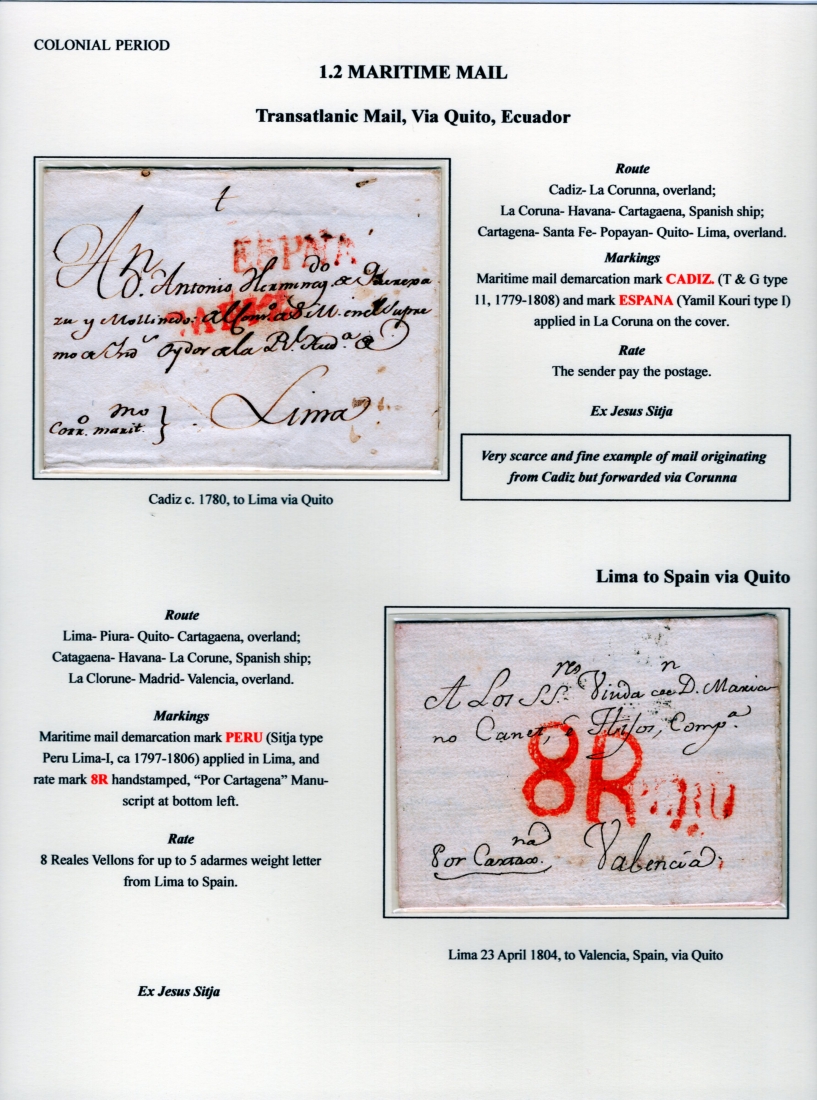 COLONIAL PERIOD
1.2 MARITIME MAIL
Transatlanic Mail, Via Quito, Ecuador
t
ESPNA
An
D. Antonio
CADIZ
zu y Mollinedo
mo de Ynd.s Oydor de la Rl. Aud.a &
Lima
mo
Corr.o marit.
Cadiz c. 1780, to Lima via Quito
Route
Cadiz- La Corunna, overland;
La Coruna- Havana- Cartagaena, Spanish ship;
Cartagena- Santa Fe- Popayan- Quito- Lima, overland.
Markings
Maritime mail demarcation mark CADIZ. (T & G type
11, 1779-1808) and mark ESPANA (Yamil Kouri type I)
applied in La Coruna on the cover.
Rate
The sender pay the postage.
Ex Jesus Sitja
Very scarce and fine example of mail originating
from Cadiz but forwarded via Corunna
Lima to Spain via Quito
Route
Lima- Piura- Quito- Cartagaena, overland;
Catagaena- Havana- La Corune, Spanish ship;
La Clorune- Madrid- Valencia, overland.
Markings
Maritime mail demarcation mark PERU (Sitja type
Peru Lima-I, ca 1797-1806) applied in Lima, and
rate mark 8R handstamped, “Por Cartagena” Manu-
script at bottom left.
Rate
8 Reales Vellons for up to 5 adarmes weight letter
from Lima to Spain.
Ex Jesus Sitja
A Los SS.res Viuda de D.n Maria
no Canet, è Hijos, Comp.a
8R PERU
Por Carta.na Valencia
Lima 23 April 1804, to Valencia, Spain, via Quito